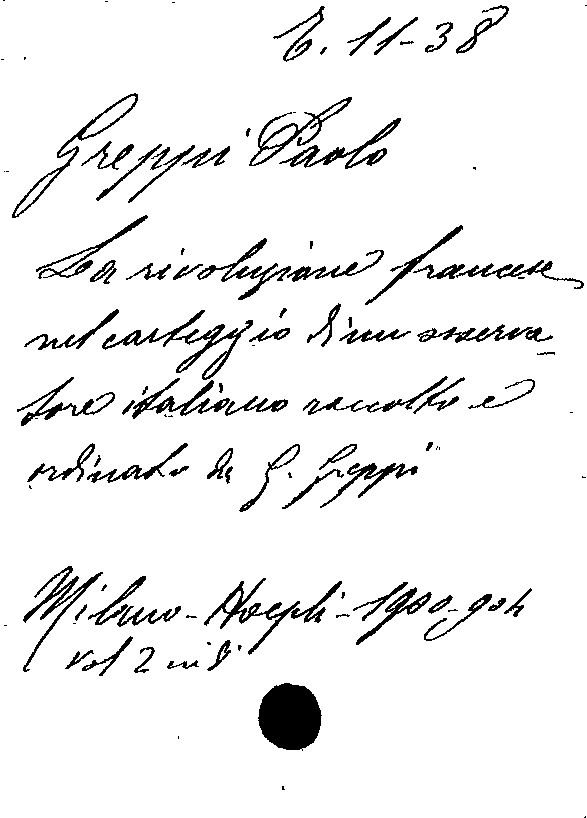 E. 11-38
Greppi Paolo
La rivoluzione francese
nel carteggio di un osserva-
tore italiano raccolto e
ordinato da G. Greppi
Milano-Hoepli-1900-904
vol 2 in 8°